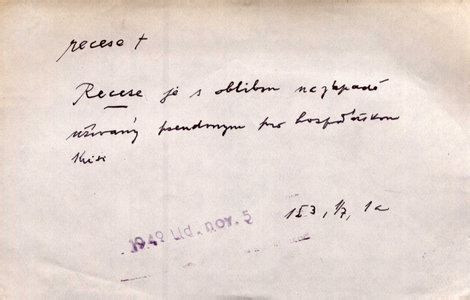 recese +
Recese je s oblibou na západě
užívaný pseudonym pro hospodářskou
krisi
153, 1/7, 1a
1949 Lid. nov. 5